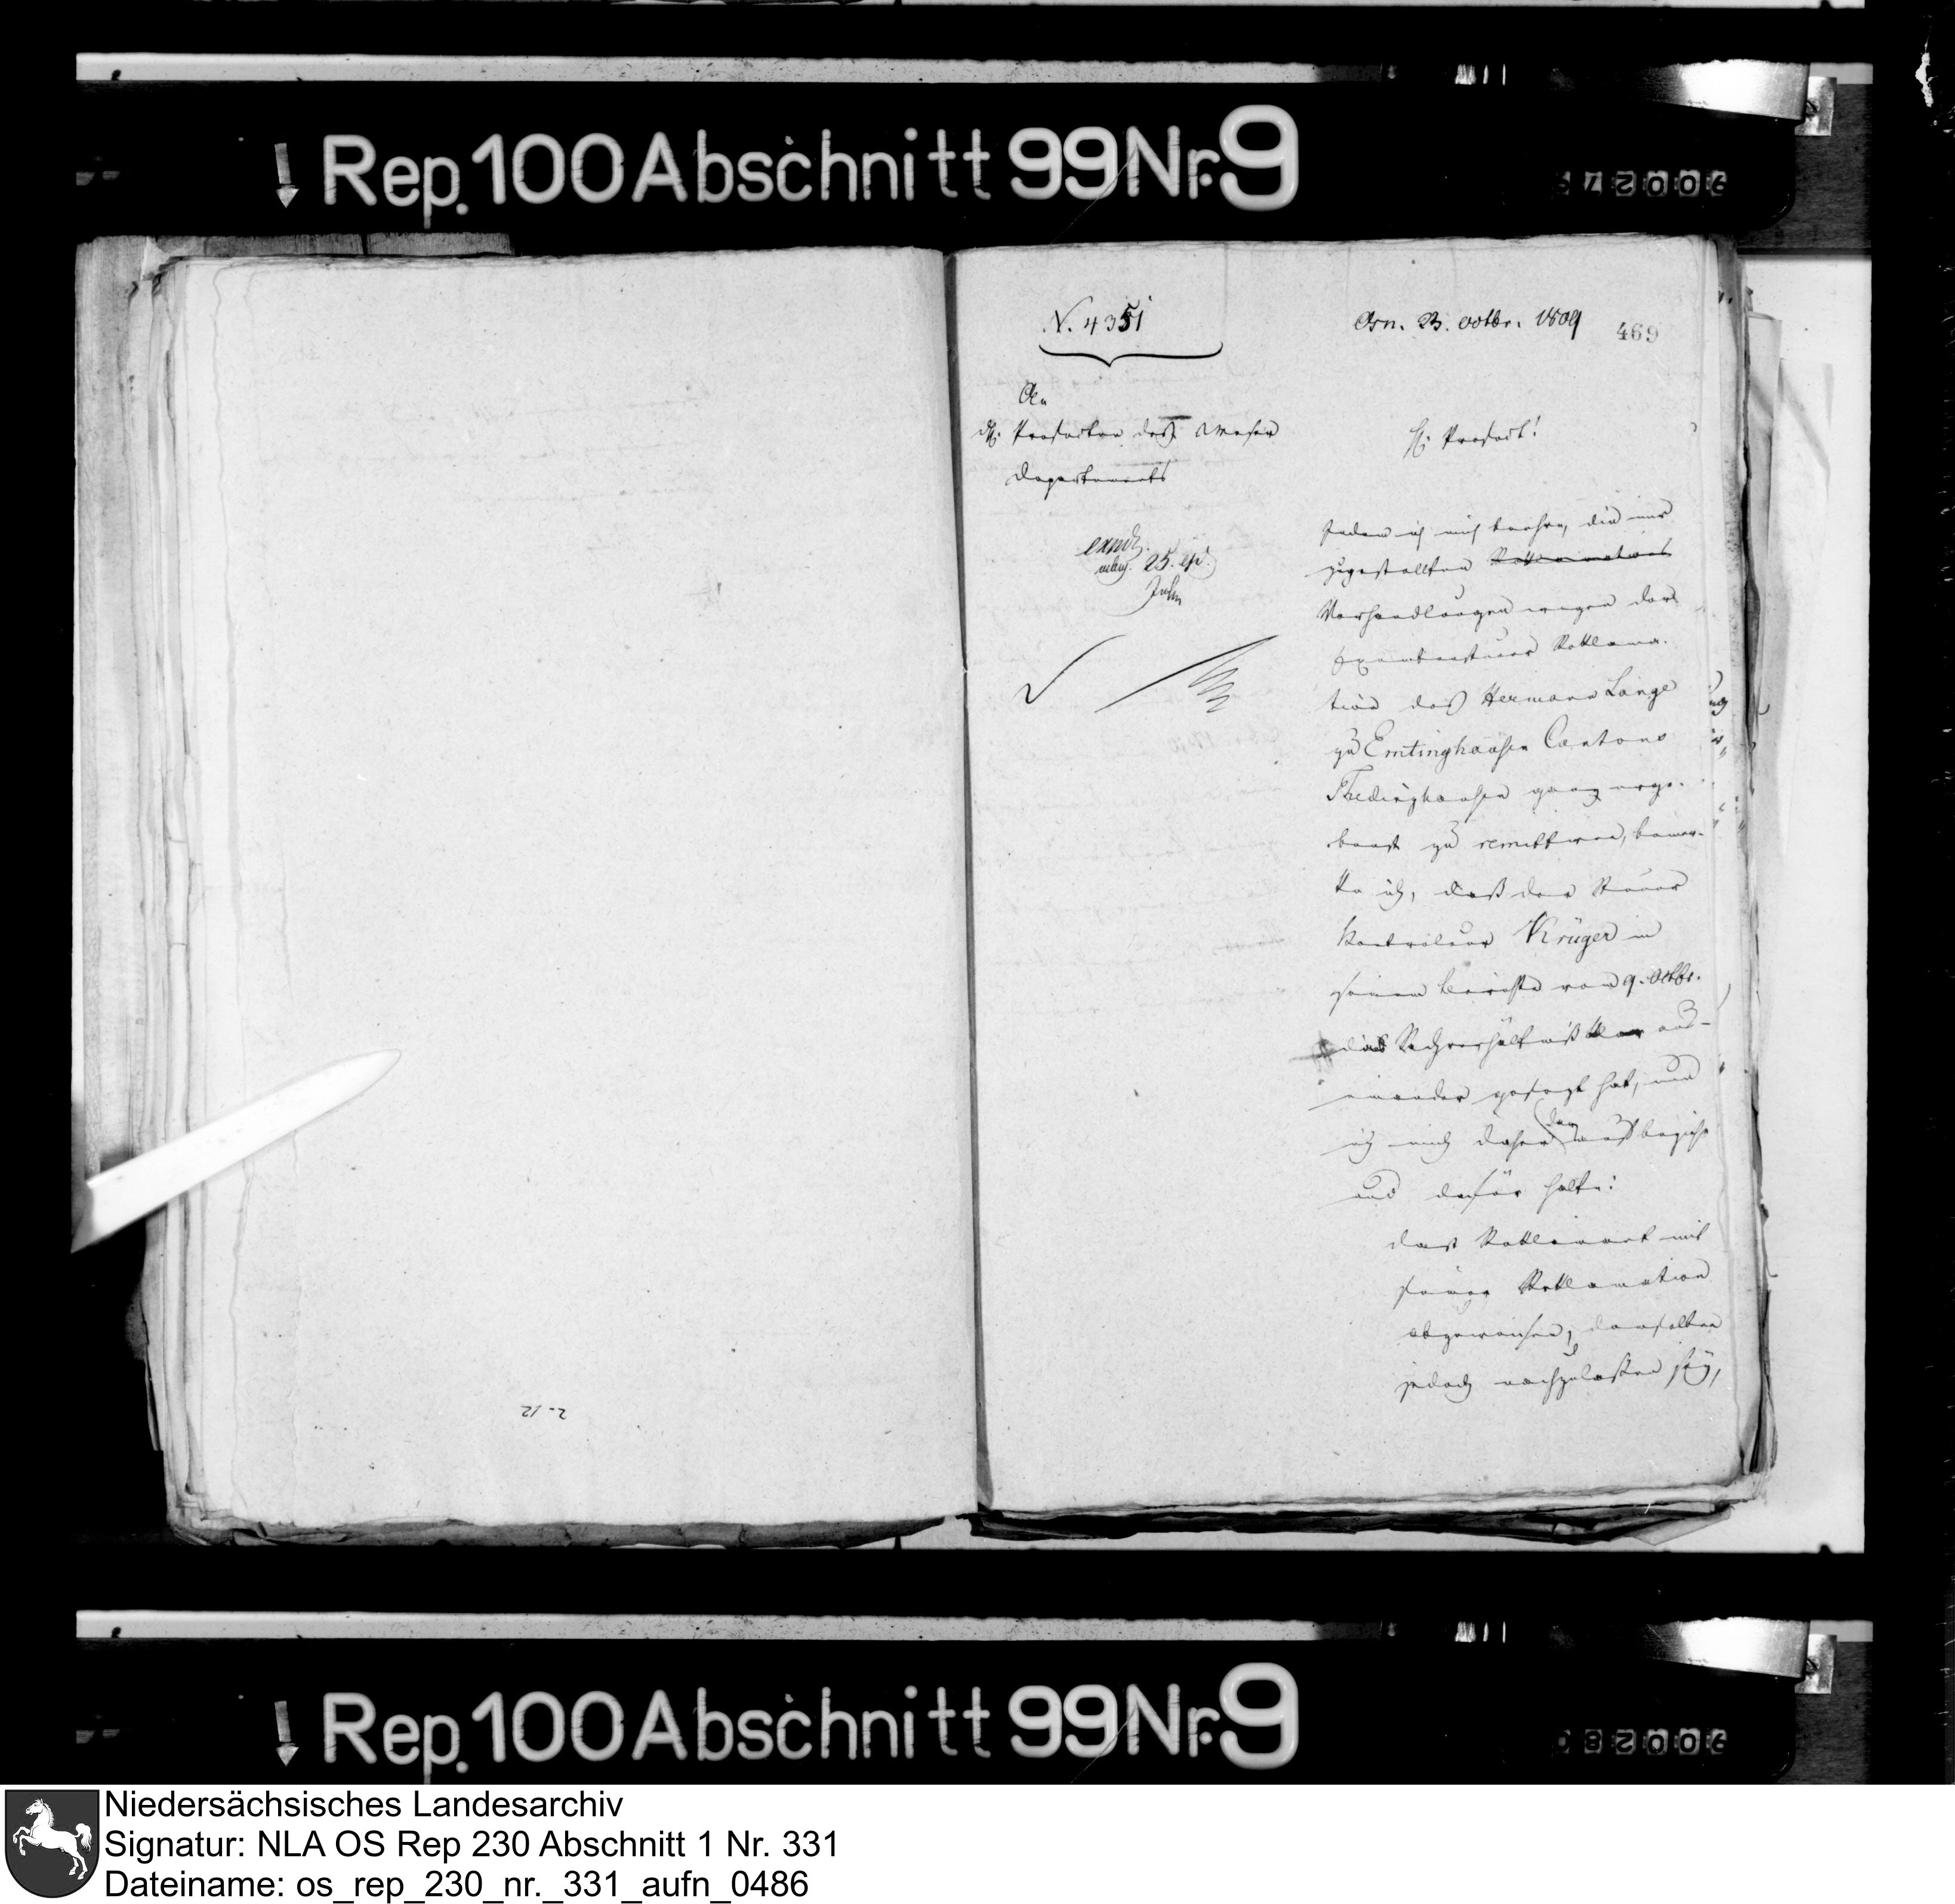 Rep. 100 Abschnitt 99 Nr. 9
N. 4351
Osn. 23. octbr. 1809
469
An
den H. Praefecten des Weser
Departements
H. Praefect!
expd.
25. ej.
Indem ich mich beehre, die mir
zugestellten Reklamations
Verhandlungen wegen der
Patentsteuer Reklama-
tion des Hermann Lange
zu Emtinghausen Cantons
Thedinghausen ganz erge-
benst zu remittiren, bemer-
ke ich, daß der Steuer
Kontroleur Krüger in
seinem Berichte vom 9. Octbr.
das Sachverhältniß klar aus-
einander gesezt hat, und
ich mich daher darauf beziehe
und dafür halte:
daß Reklamant mit
seiner Reklamation
abzuweisen, demselben
jedoch nachzulassen sey,
2-12
Rep. 100 Abschnitt 99 Nr. 9
Niedersächsisches Landesarchiv
Signatur: NLA OS Rep 230 Abschnitt 1 Nr. 331
Dateiname: os_rep_230_nr._331_aufn_0486